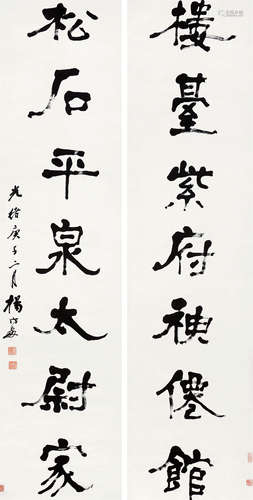 楼臺紫府神僊館
松石平泉太尉家
光緒庚子二月楊